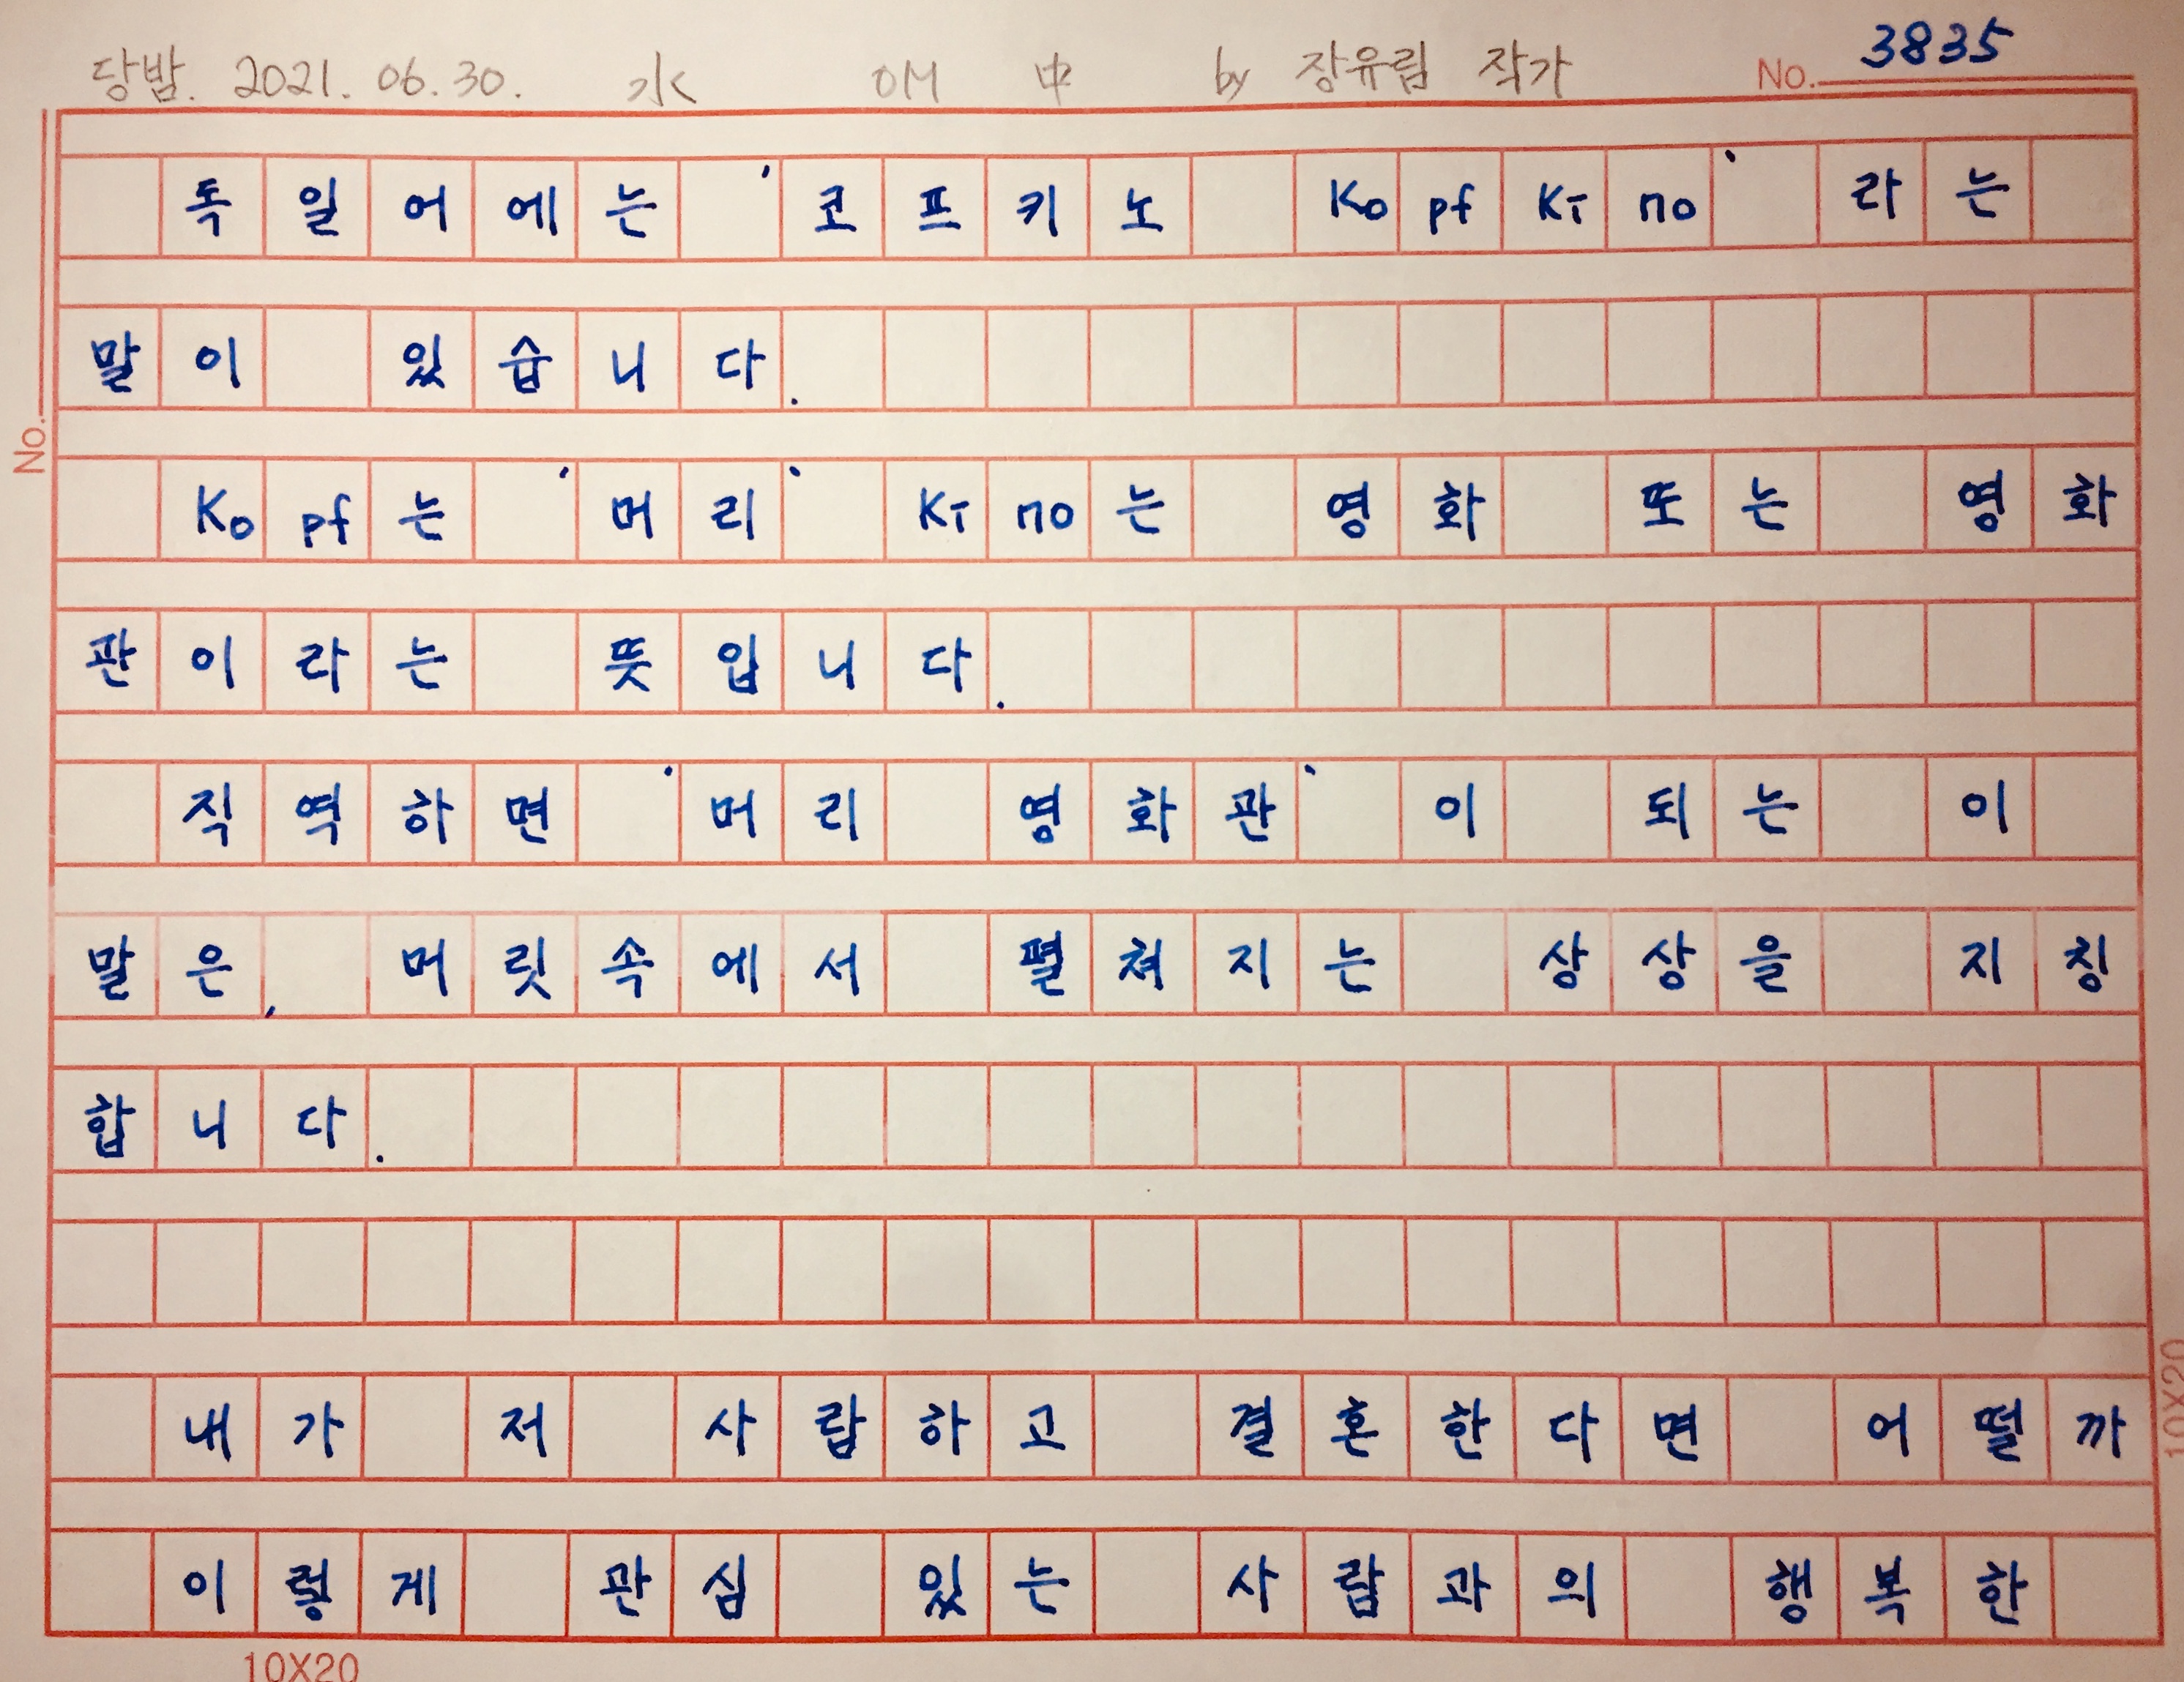 당밤. 2021. 06. 30. 水 OM 中 by 장유림 작가 No. 3835
독일어에는 '코프키노 Kopfkino' 라는
말이 있습니다.
Kopf는 '머리' Kino는 영화 또는 영화
관이라는 뜻입니다.
직역하면 '머리 영화관' 이 되는 이
말은, 머릿속에서 펼쳐지는 상상을 지칭
합니다.
내가 저 사람하고 결혼한다면 어떨까
이렇게 관심 있는 사람과의 행복한
No.
10X20
10X20